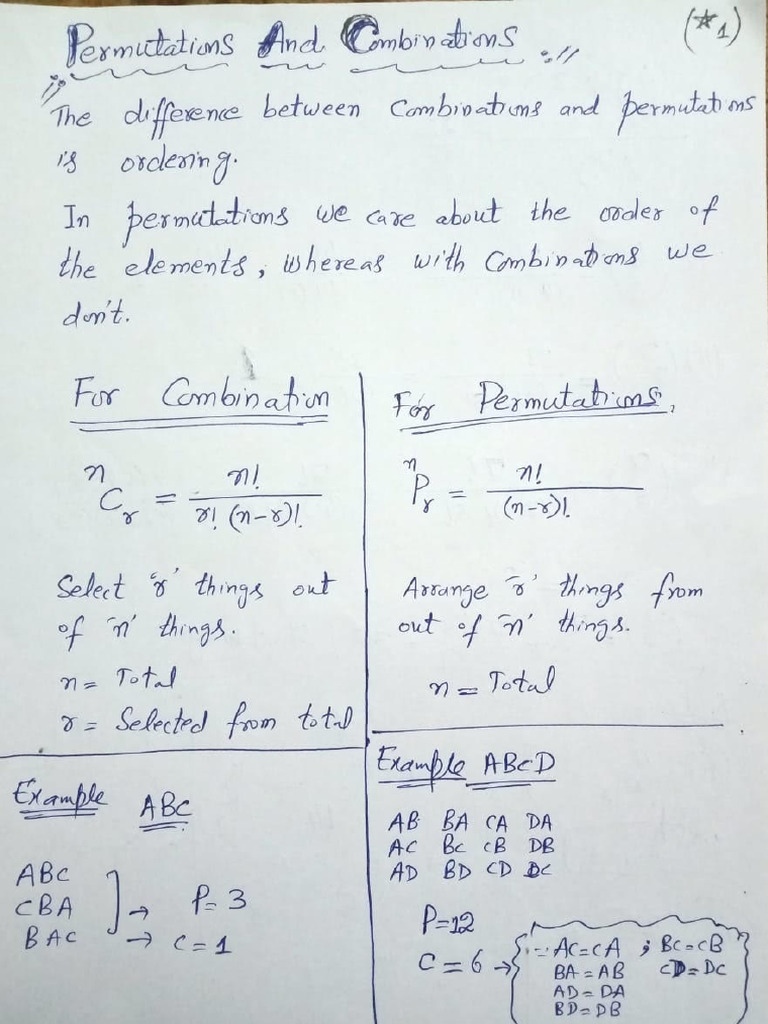 (*1)
Permutations And Combinations
The difference between Combinations and permutations
is ordering.
In permutations we care about the order of
the elements, whereas with Combinations we
don't.
For Combination
nCr = n! / r! (n-r)!
Select 'r' things out
of 'n' things.
n = Total
r = Selected from total
For Permutations,
nPr = n! / (n-r)!
Arrange 'r' things from
out of 'n' things.
n = Total
Example ABC
ABC
CBA
BAC
→ P=3
→ C=1
Example ABCD
AB BA CA DA
AC BC CB DB
AD BD CD DC
P=12
C=6 →
AC=CA ; BC=CB
BA=AB CD=DC
AD=DA
BD=DB